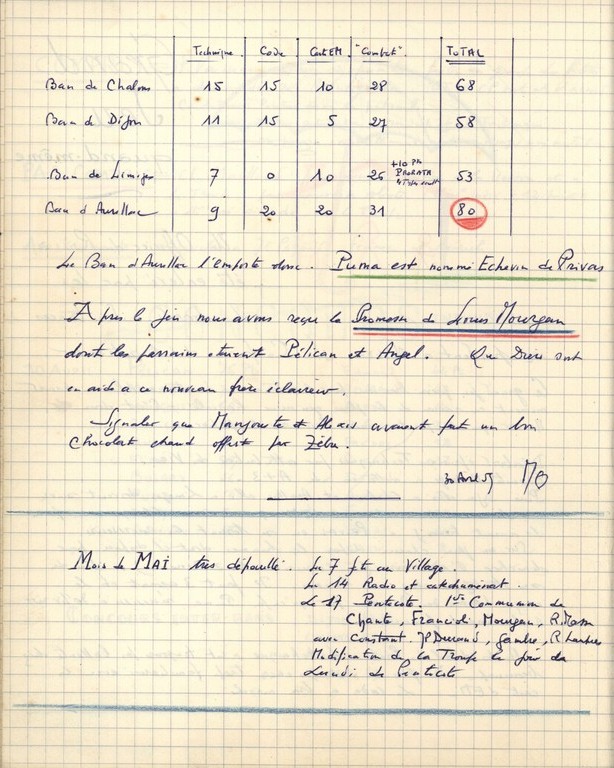 Technique. Code Cart EM "Combat". TOTAL
Ban de Chalons 15 15 10 28 68
Ban de Dijon 11 15 5 27 58
Ban de Limoges 7 0 10 26 +10 PR PRORATA 53
Ban d'Aurillac 9 20 20 31 80
Le Ban d'Aurillac l'emporte donc. Puma est nommé Echevin de Privas
Après le jeu nous avons reçu la Promesse de Louis Mourgeau
dont les parrains étaient Pélican et Angel. Que Dieu soit
en aide à ce nouveau frère éclaireur.
Signaler que Marjorete et Alexis avaient fait un bon
chocolat chaud offert par Zébu.
30 Avril 59
Mois de MAI très dépouillé. Le 7 fut au Village.
Le 14 Radio et catéchuménat.
Le 17 Pentecôte. 1ère Communion de
Chante, Francioli, Mourgeau, R.
avec Constant. JP Durand, R
Modification de la Troupe le jour du
Lundi de Pentecôte